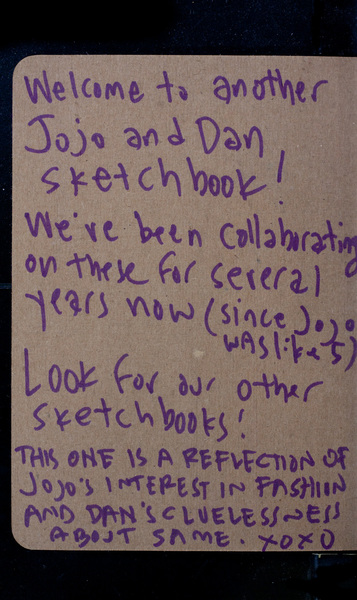 Welcome to another
Jojo and Dan
sketchbook!
We've been collaborating
on these for several
years now (since Jojo
was like 5)
Look for our other
sketchbooks!
THIS ONE IS A REFLECTION OF
JOJO'S INTEREST IN FASHION
AND DAN'S CLUELESSNESS
ABOUT SAME. XOXO